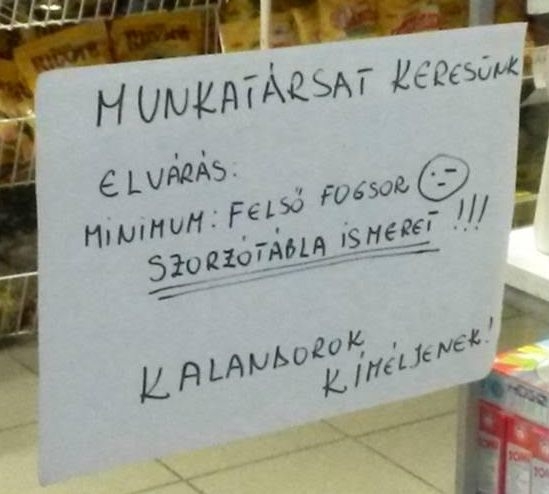 MUNKATÁRSAT KERESÜNK
ELVÁRÁS:
MINIMUM: FELSŐ FOGSOR
SZORZÓTÁBLA ISMERET !!!
KALANDOROK
KÍMÉLJENEK!